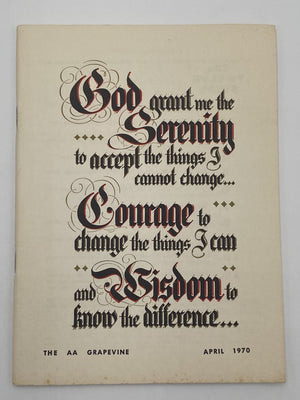 God grant me the
Serenity
to accept the things I
cannot change...
Courage to
change the things I can
and Wisdom to
know the difference...
THE AA GRAPEVINE APRIL 1970